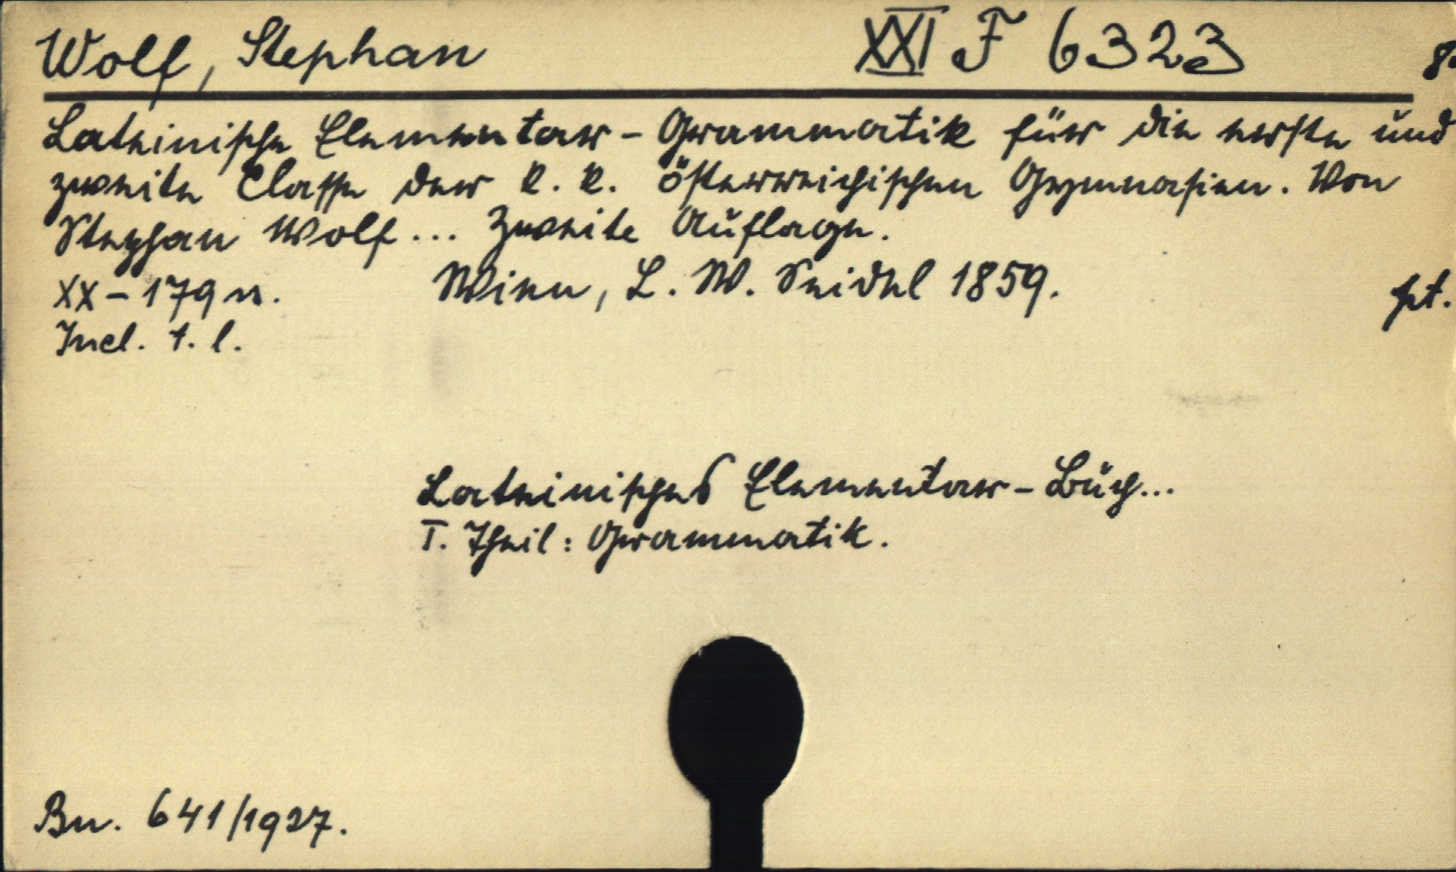 Wolf, Stephan XXI F 6323 8°
Lateinische Elementar-Grammatik für die erste und
zweite Classe der k. k. österreichischen Gymnasien. Von
Stephan Wolf... Zweite Auflage.
XX-179 s. Wien, L. W. Seidel 1859. pt.
Incl. t. l.
Lateinisches Elementar-Buch...
I. Theil: Grammatik.
Bn. 641/1927.